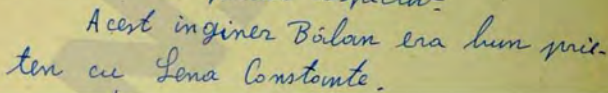 Acest inginer Bălan era bun prie-
ten cu Lena Constante.